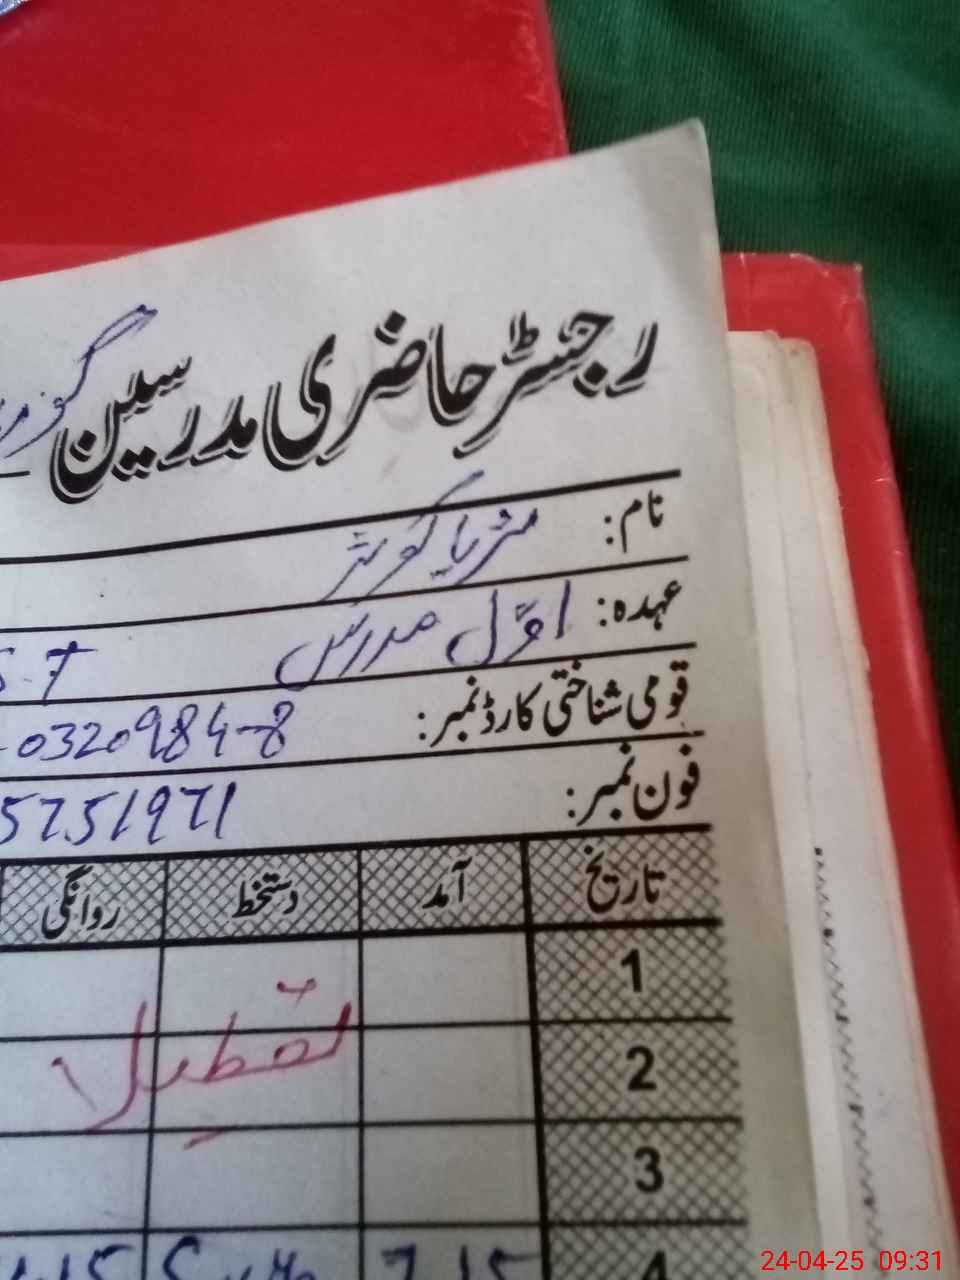 رجسٹر حاضری مدرسین گو
نام: ثریا کوثر
عہدہ: اوّل مدرس S.T
قومی شناختی کارڈ نمبر: -0320984-8
فون نمبر: 5751971
تاریخ آمد دستخط روانگی
1
تعطیل
2
3
4 7.15
24-04-25 09:31